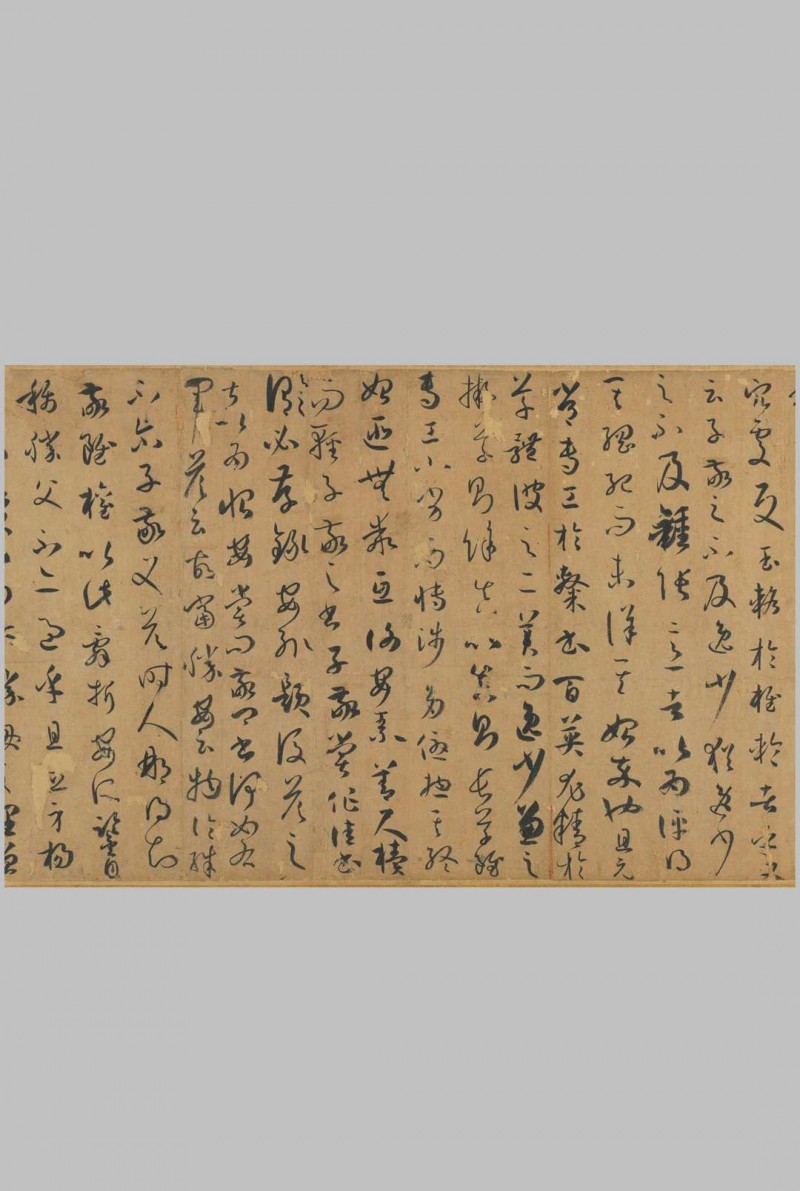 穴處反玉輅於椎輪者乎又
云子敬之不及逸少猶逸少
之不及鍾張意者以為評得
其綱紀而未詳其始卒也且元
常專工於隸書百英尤精於
草體彼之二美而逸少兼之
擬草則餘真比真則長草雖
專工小劣而博涉多優揔其終
始匪無乖互謝安素善尺櫝
而輕子敬之書子敬嘗作佳書
與之
謂必存錄安輒題後答之
甚以為恨安嘗問敬卿書何如右
軍答云故當勝安云物論殊
不尔子敬又答時人那得知
敬雖權以此辭折安所鑒自
稱勝父不亦過乎且立身揚
勝母之里